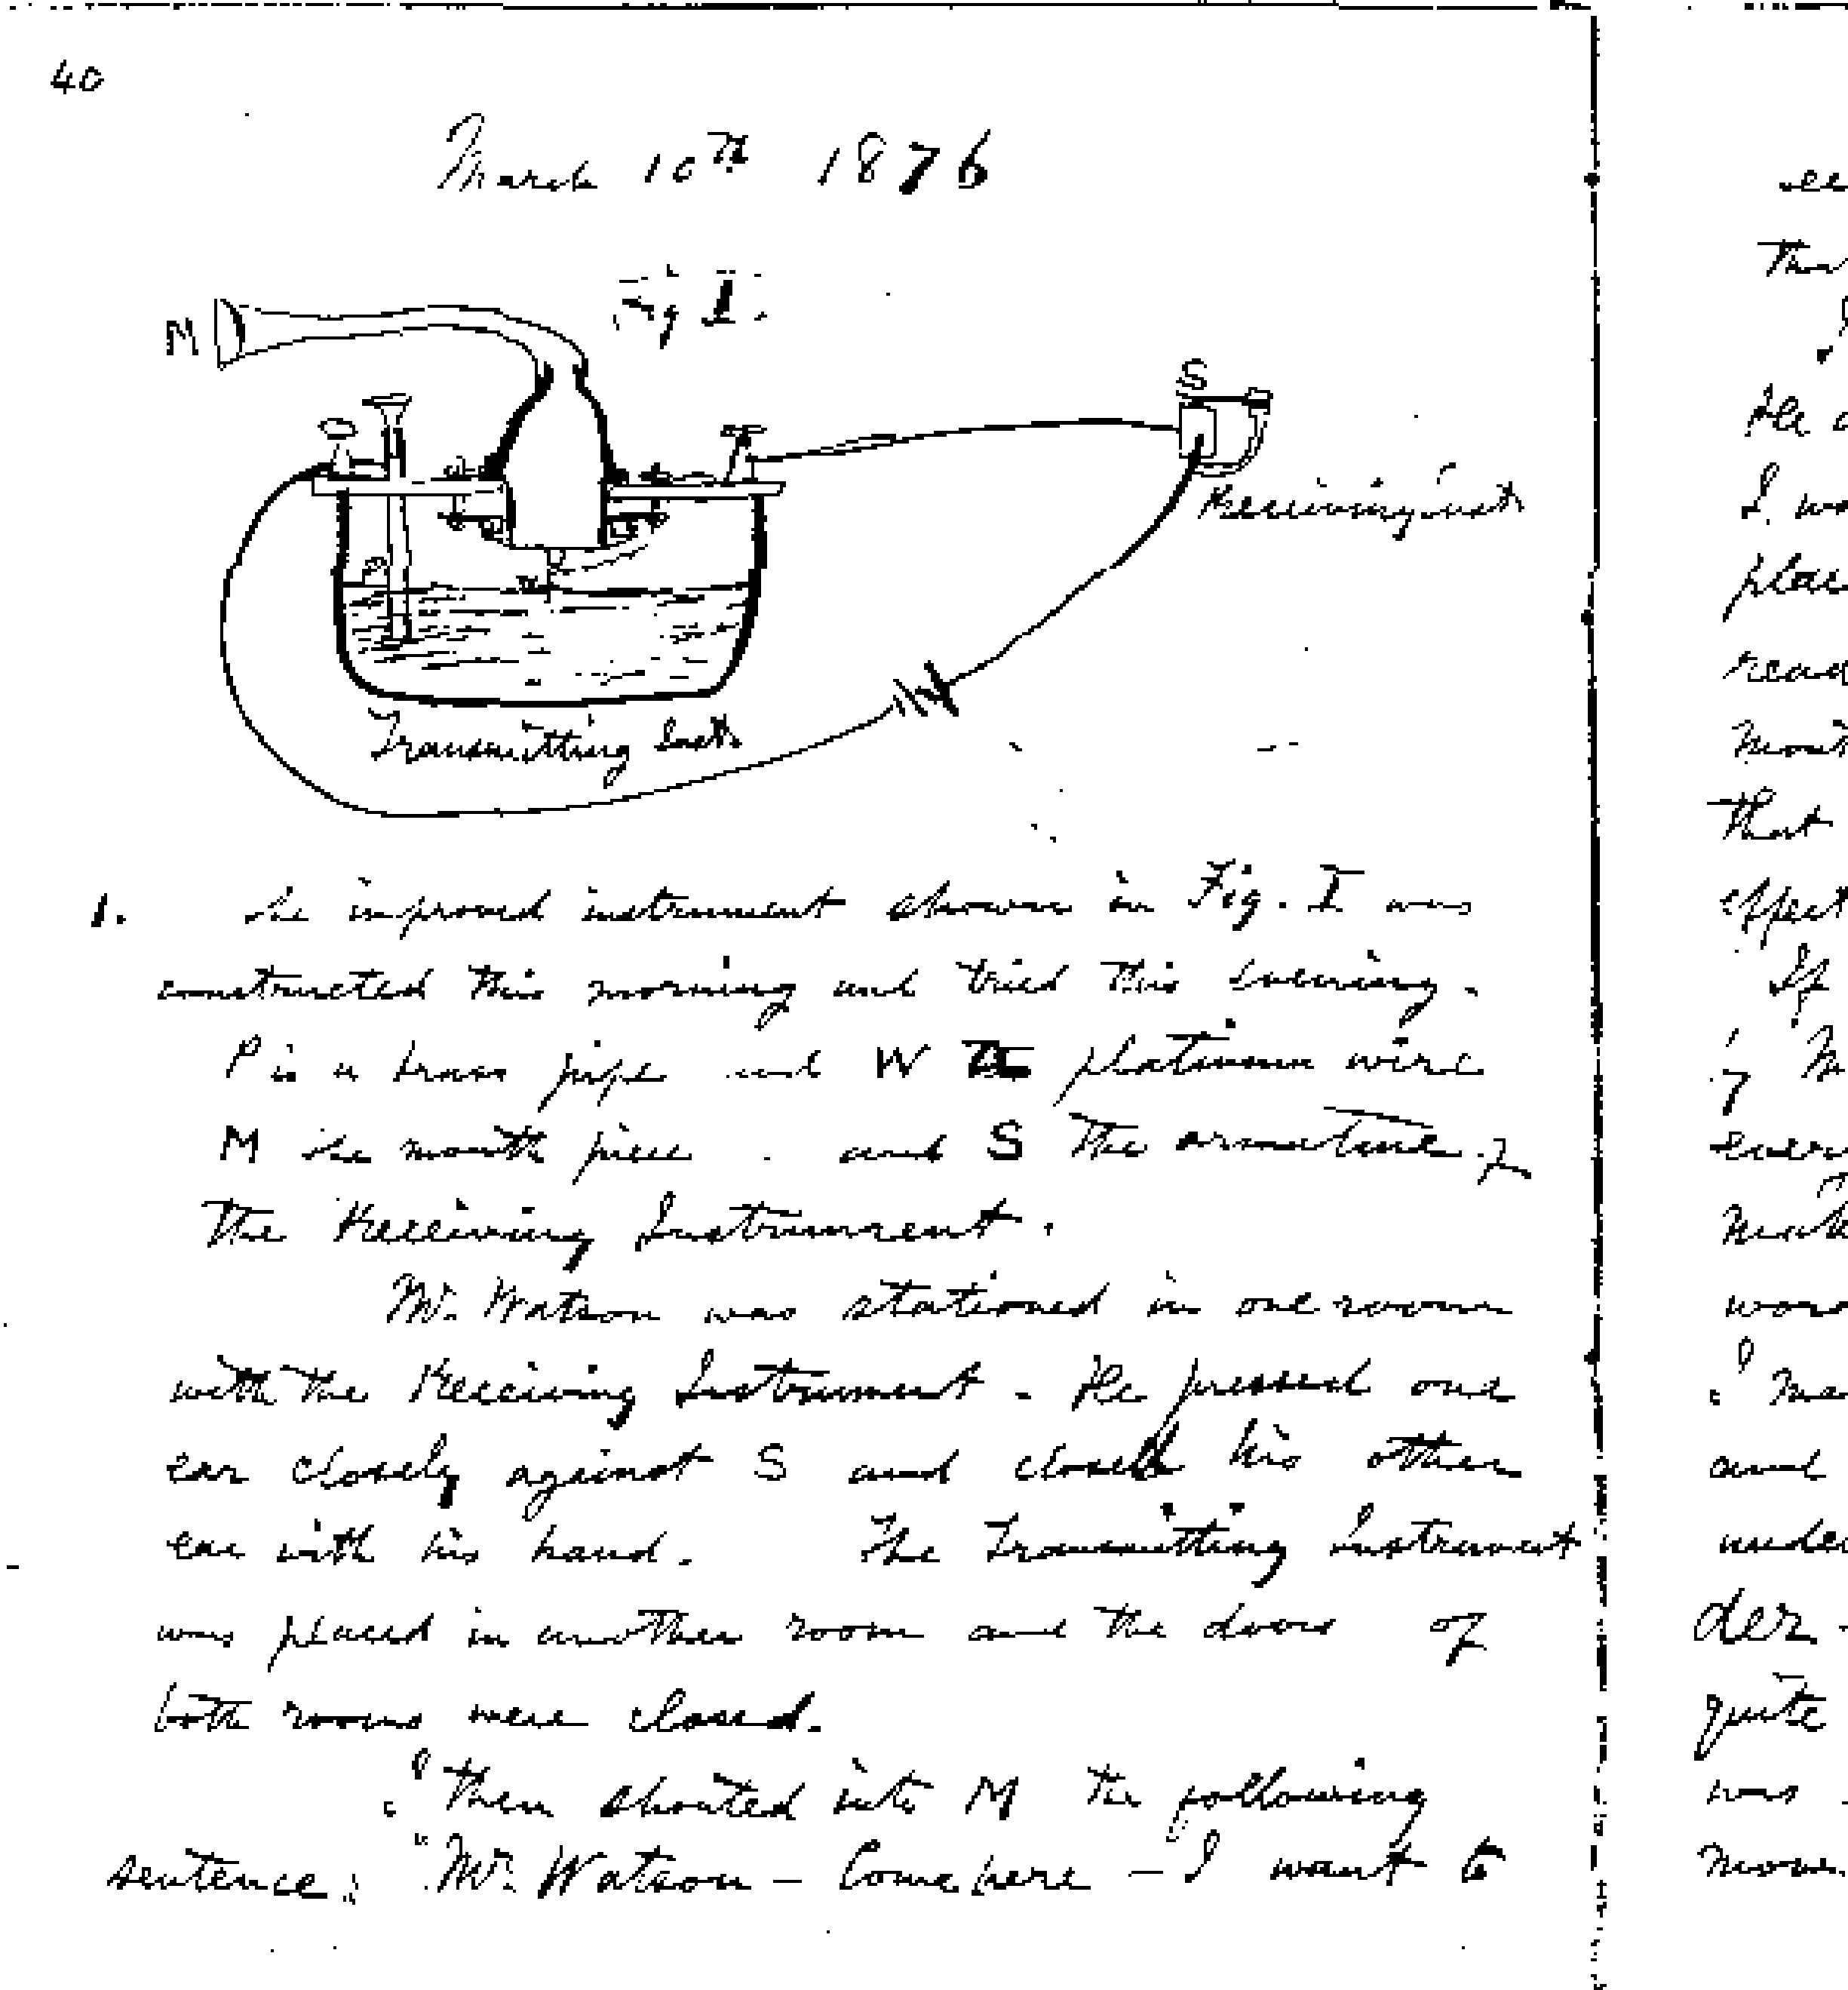 40
March 10th 1876
Fig I.
M
S
Receiving Inst.
P
W
Transmitting Inst.
1. The improved instrument shown in Fig. I was
constructed this morning and tried this evening.
P is a brass pipe and W the platinum wire
M the mouth piece and S the armature of
the Receiving Instrument.
Mr. Watson was stationed in one room
with the Receiving Instrument. He pressed one
ear closely against S and closed his other
ear with his hand. The Transmitting Instrument
was placed in another room and the doors of
both rooms were closed.
I then shouted into M the following
sentence: "Mr. Watson – Come here – I want to
see
I wa
plac
read
mout
that
effect
If
wor
and
unde
der -
quite
was